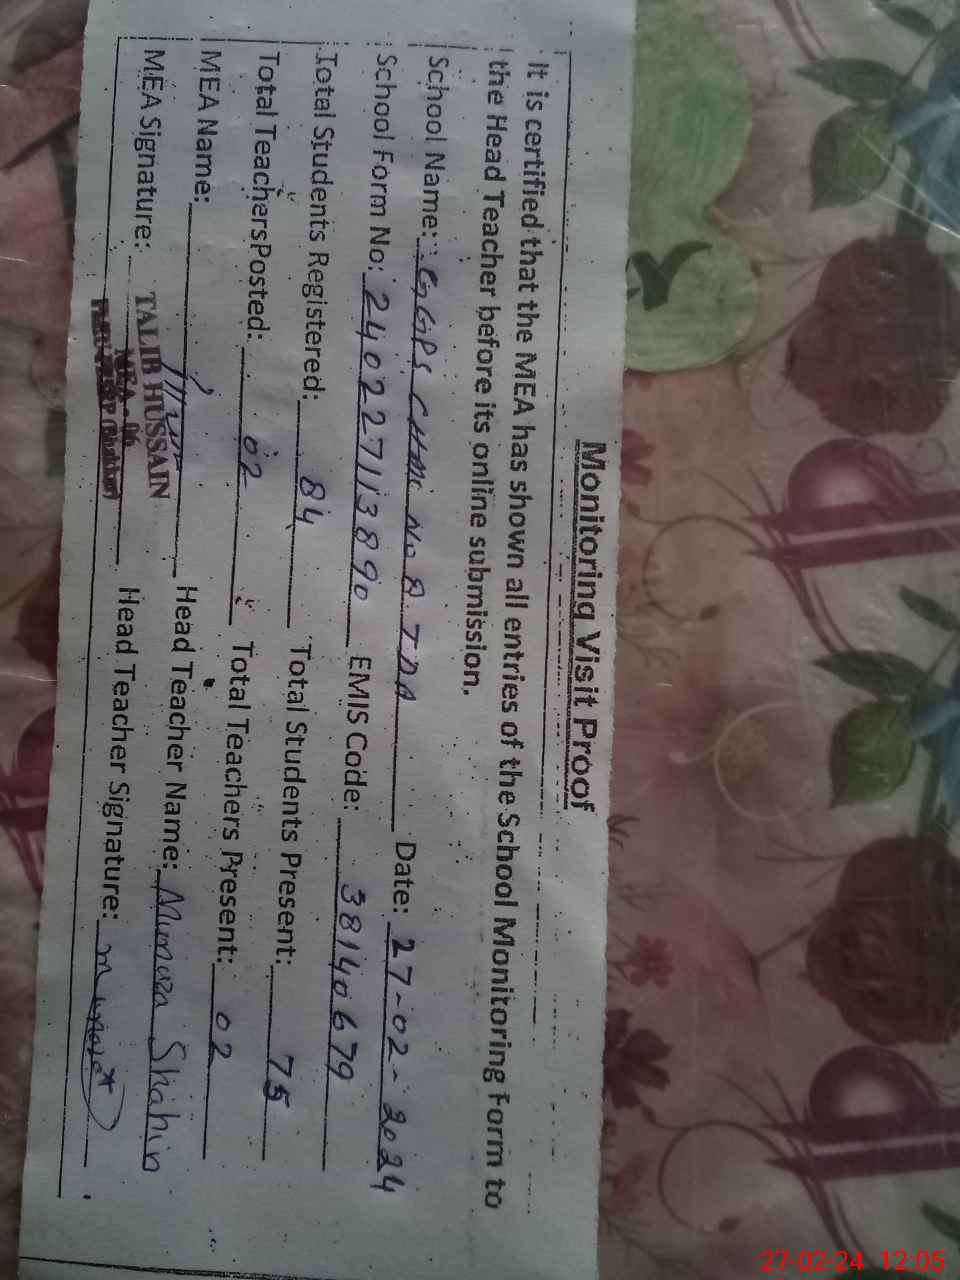 Monitoring Visit Proof
It is certified that the MEA has shown all entries of the School Monitoring Form to
the Head Teacher before its online submission.
School Name: GGPS CHAK No Date: 27-02-2024
School Form No: 240227113890 EMIS Code: 38140679
Total Students Registered: 84 Total Students Present: 75
Total Teachers Posted: 02 Total Teachers Present: 02
MEA Name: Head Teacher Name: Munaza Shahin
MEA Signature: Head Teacher Signature: Munaza
TALIB HUSSAIN
MEA - 06
27-02-24 12:05